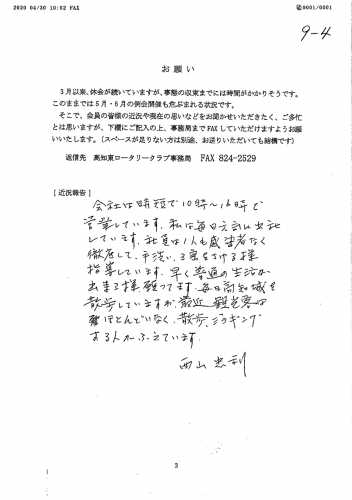 2020 04/30 10:02 FAX
0001/0001
9-4
お願い
3月以来、休会が続いていますが、事態の収束までには時間がかかりそうです。
このままでは5月・6月の例会開催も危ぶまれる状況です。
そこで、会員の皆様の近況や現在の思いなどをお聞かせいただきたく、ご多忙
とは思いますが、下欄にご記入の上、事務局までFAXしていただけますようお願
いいたします。(スペースが足りない方は別途、お送りいただいても結構です)
返信先 高知東ロータリークラブ事務局 FAX 824-2529
[近況報告]
会社は時短で10時〜16時で
営業しています。私は毎日元気に出社
しています。社員は1人も感染者なく
徹底して、手洗い、3密をさける様
指導しています。早く普通の生活が
出来る様願ってます。毎日高知城を
散歩していますが最近観光客は
ほとんどいなく、散歩、ジョギング
する人がふえています。
西山忠利
3